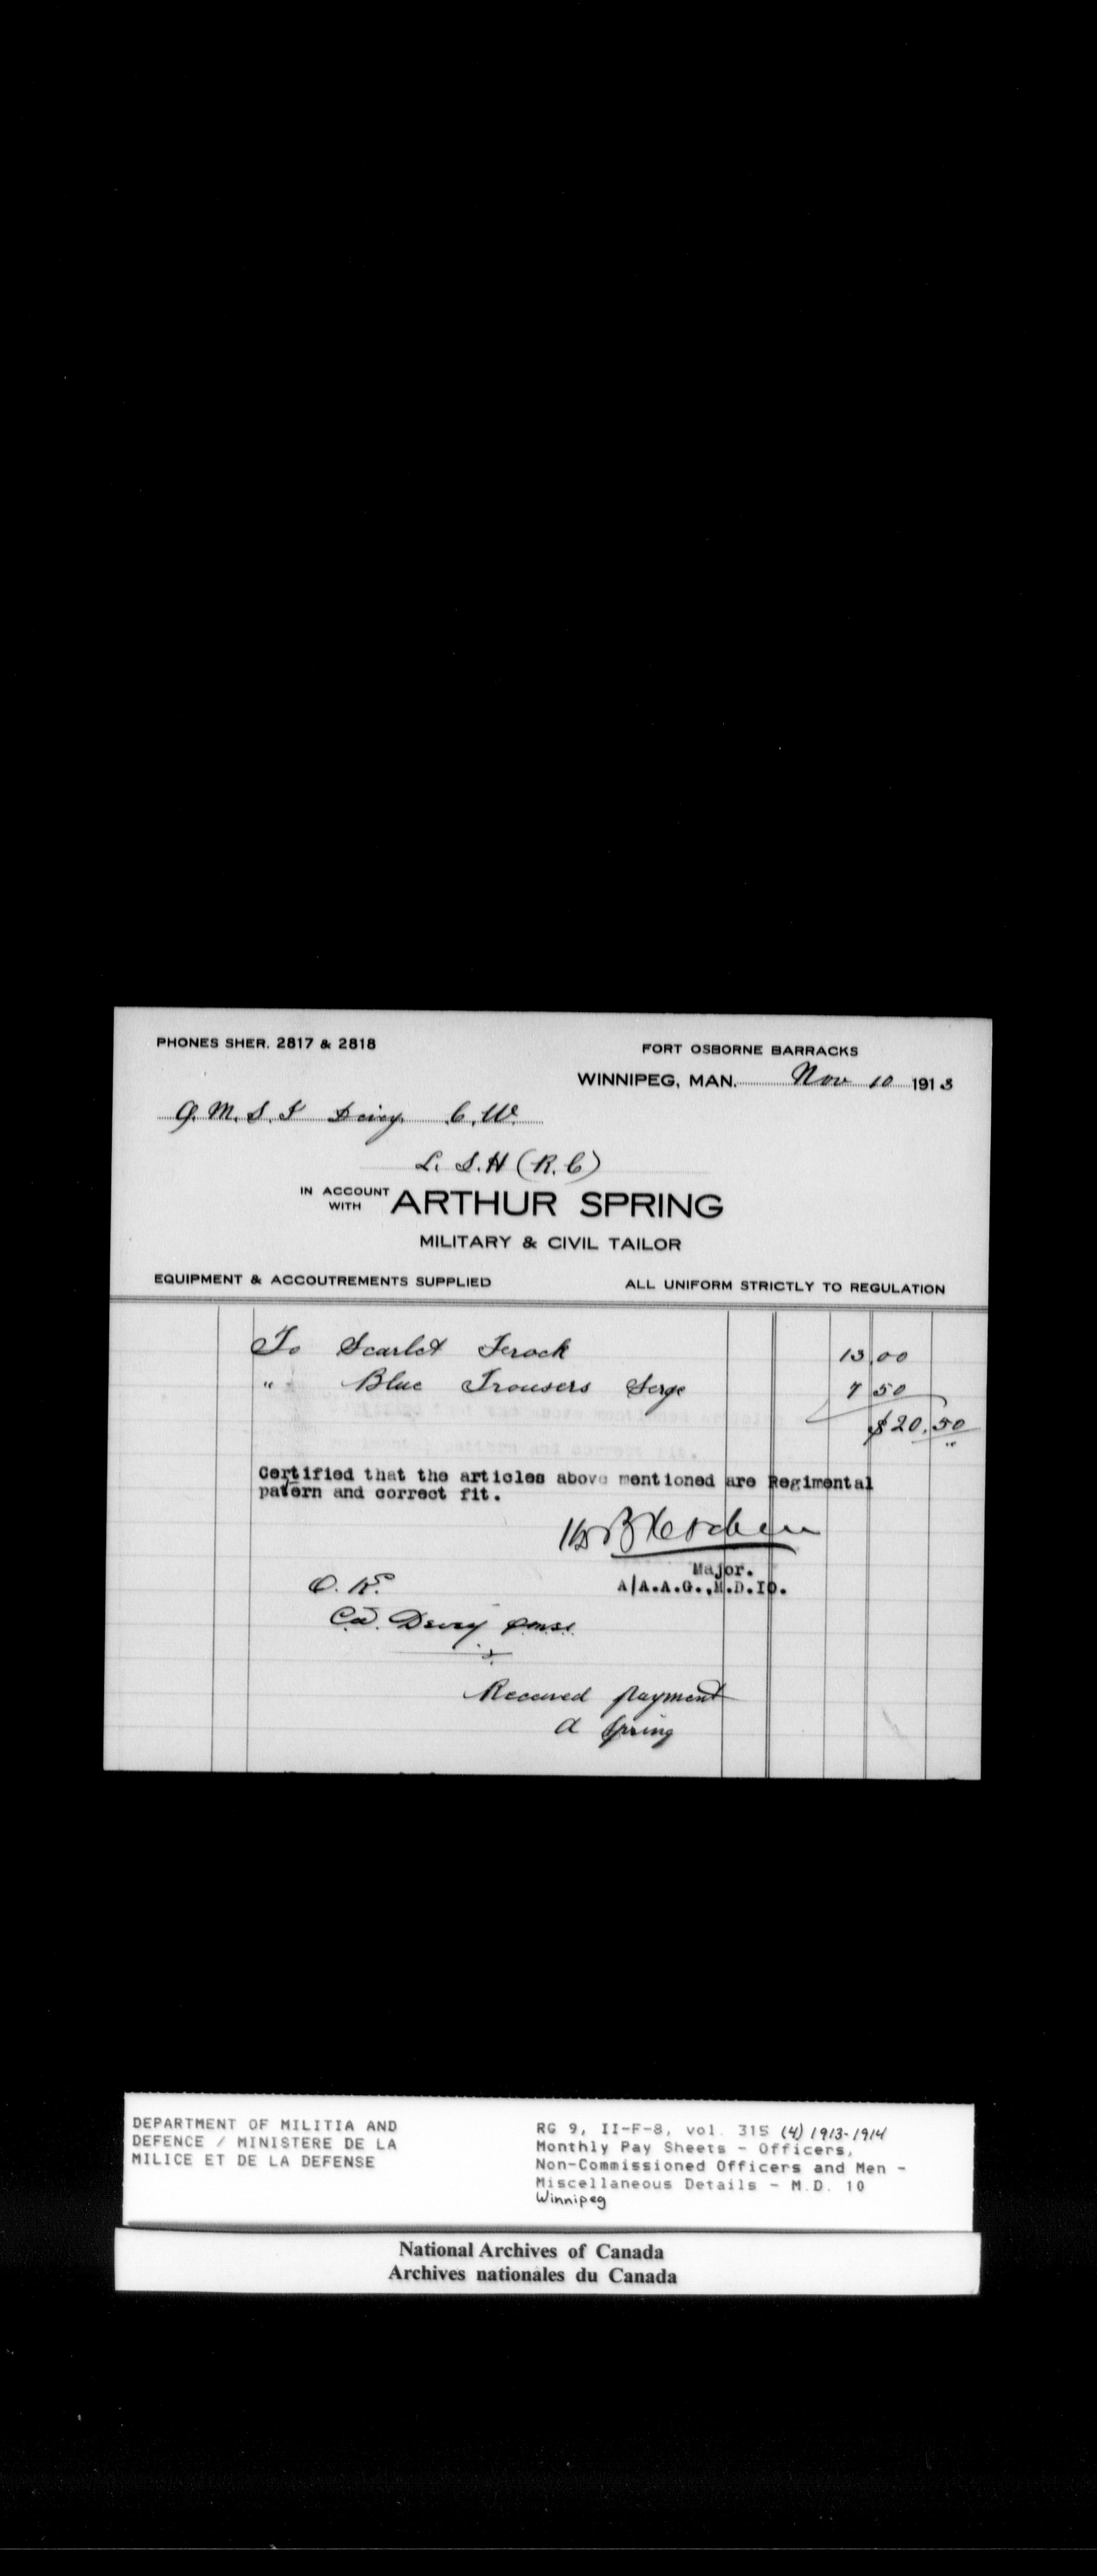 PHONES SHER. 2817 & 2818
FORT OSBORNE BARRACKS
WINNIPEG, MAN. Nov 10 1913
Q. M. S. I Davy. C. W.
L. S. H (R. C)
IN ACCOUNT WITH ARTHUR SPRING
MILITARY & CIVIL TAILOR
EQUIPMENT & ACCOUTREMENTS SUPPLIED
ALL UNIFORM STRICTLY TO REGULATION
To Scarlet Frock 13.00
" Blue Trousers Serge 7 50
$20.50
Certified that the articles above mentioned are Regimental
patern and correct fit.
Major.
A/A.A.G.,M.D.IO.
O. K.
QMSI
Received payment
A Spring
DEPARTMENT OF MILITIA AND
DEFENCE / MINISTERE DE LA
MILICE ET DE LA DEFENSE
RG 9, II-F-8, vol. 315 (4) 1913-1914
Monthly Pay Sheets - Officers,
Non-Commissioned Officers and Men -
Miscellaneous Details - M.D. 10
Winnipeg
National Archives of Canada
Archives nationales du Canada